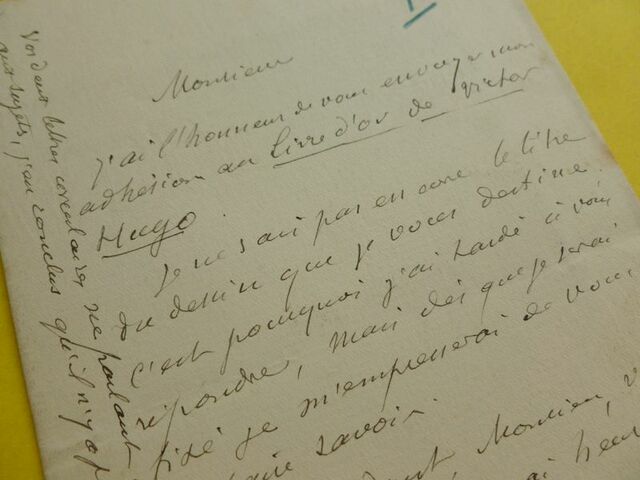 Monsieur
j'ai l'honneur de vous envoyer mon
adhésion au Livre d'or de Victor
Hugo.
Je ne sais pas encore le titre
du dessin que je vous destine.
C'est pourquoi j'ai tardé à vous
répondre, mais dès que je serai
fixé je m'empresserai de vous
faire savoir.
Monsieur, v
ai heur
Vos deux lettres circulaires ne parlant
aux sujets, j'en conclus qu'il n'y a p